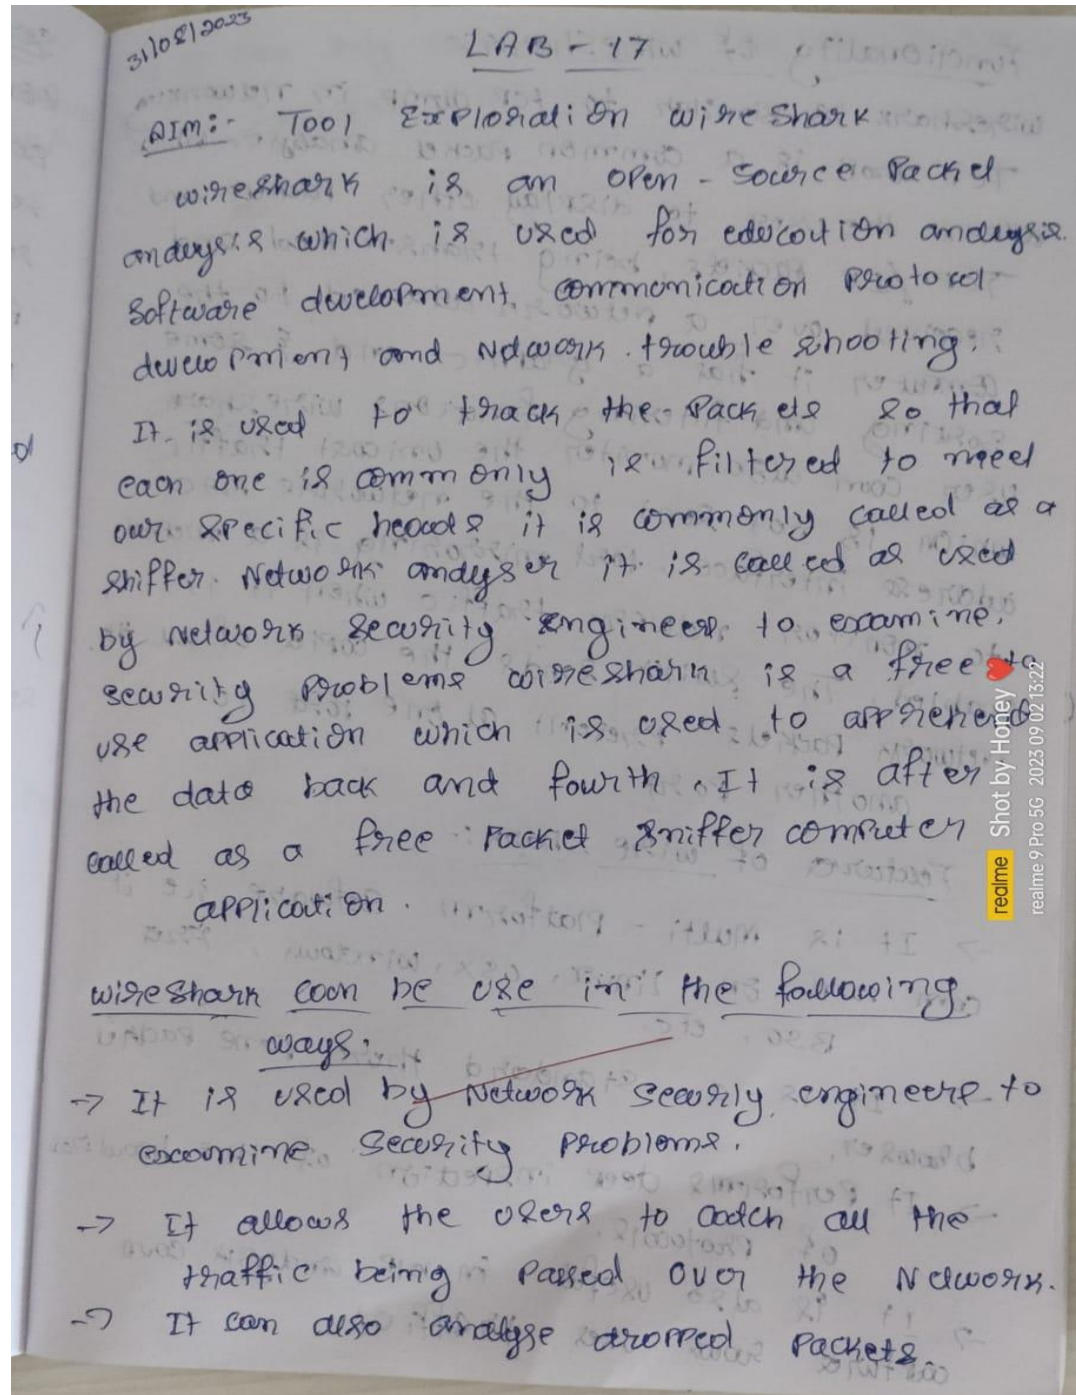 31/08/2023
LAB - 17
AIM:- Tool Exploration wire Shark
wireshark is an open - source Packet
analysis which is used for education analysis.
Software development, communication protocol
development and Network trouble shooting.
It is used to track the packets so that
each one is commonly is filtered to meet
our specific heads it is commonly called as a
sniffer. Network analyser it is called as used
by Network security engineers to examine.
security problems wireshark is a free to
use application which is used to apprehend
the data back and fourth. It is after
called as a free Packet sniffer computer
application.
wireshark can be use in the following
ways.
-> It is used by Network securly engineers to
examine security problems.
-> It allows the users to catch all the
traffic being passed over the Network.
-> It can also analyse dropped packets.
realme Shot by Honey ❤
realme 9 Pro 5G 2023 09 02 13:22